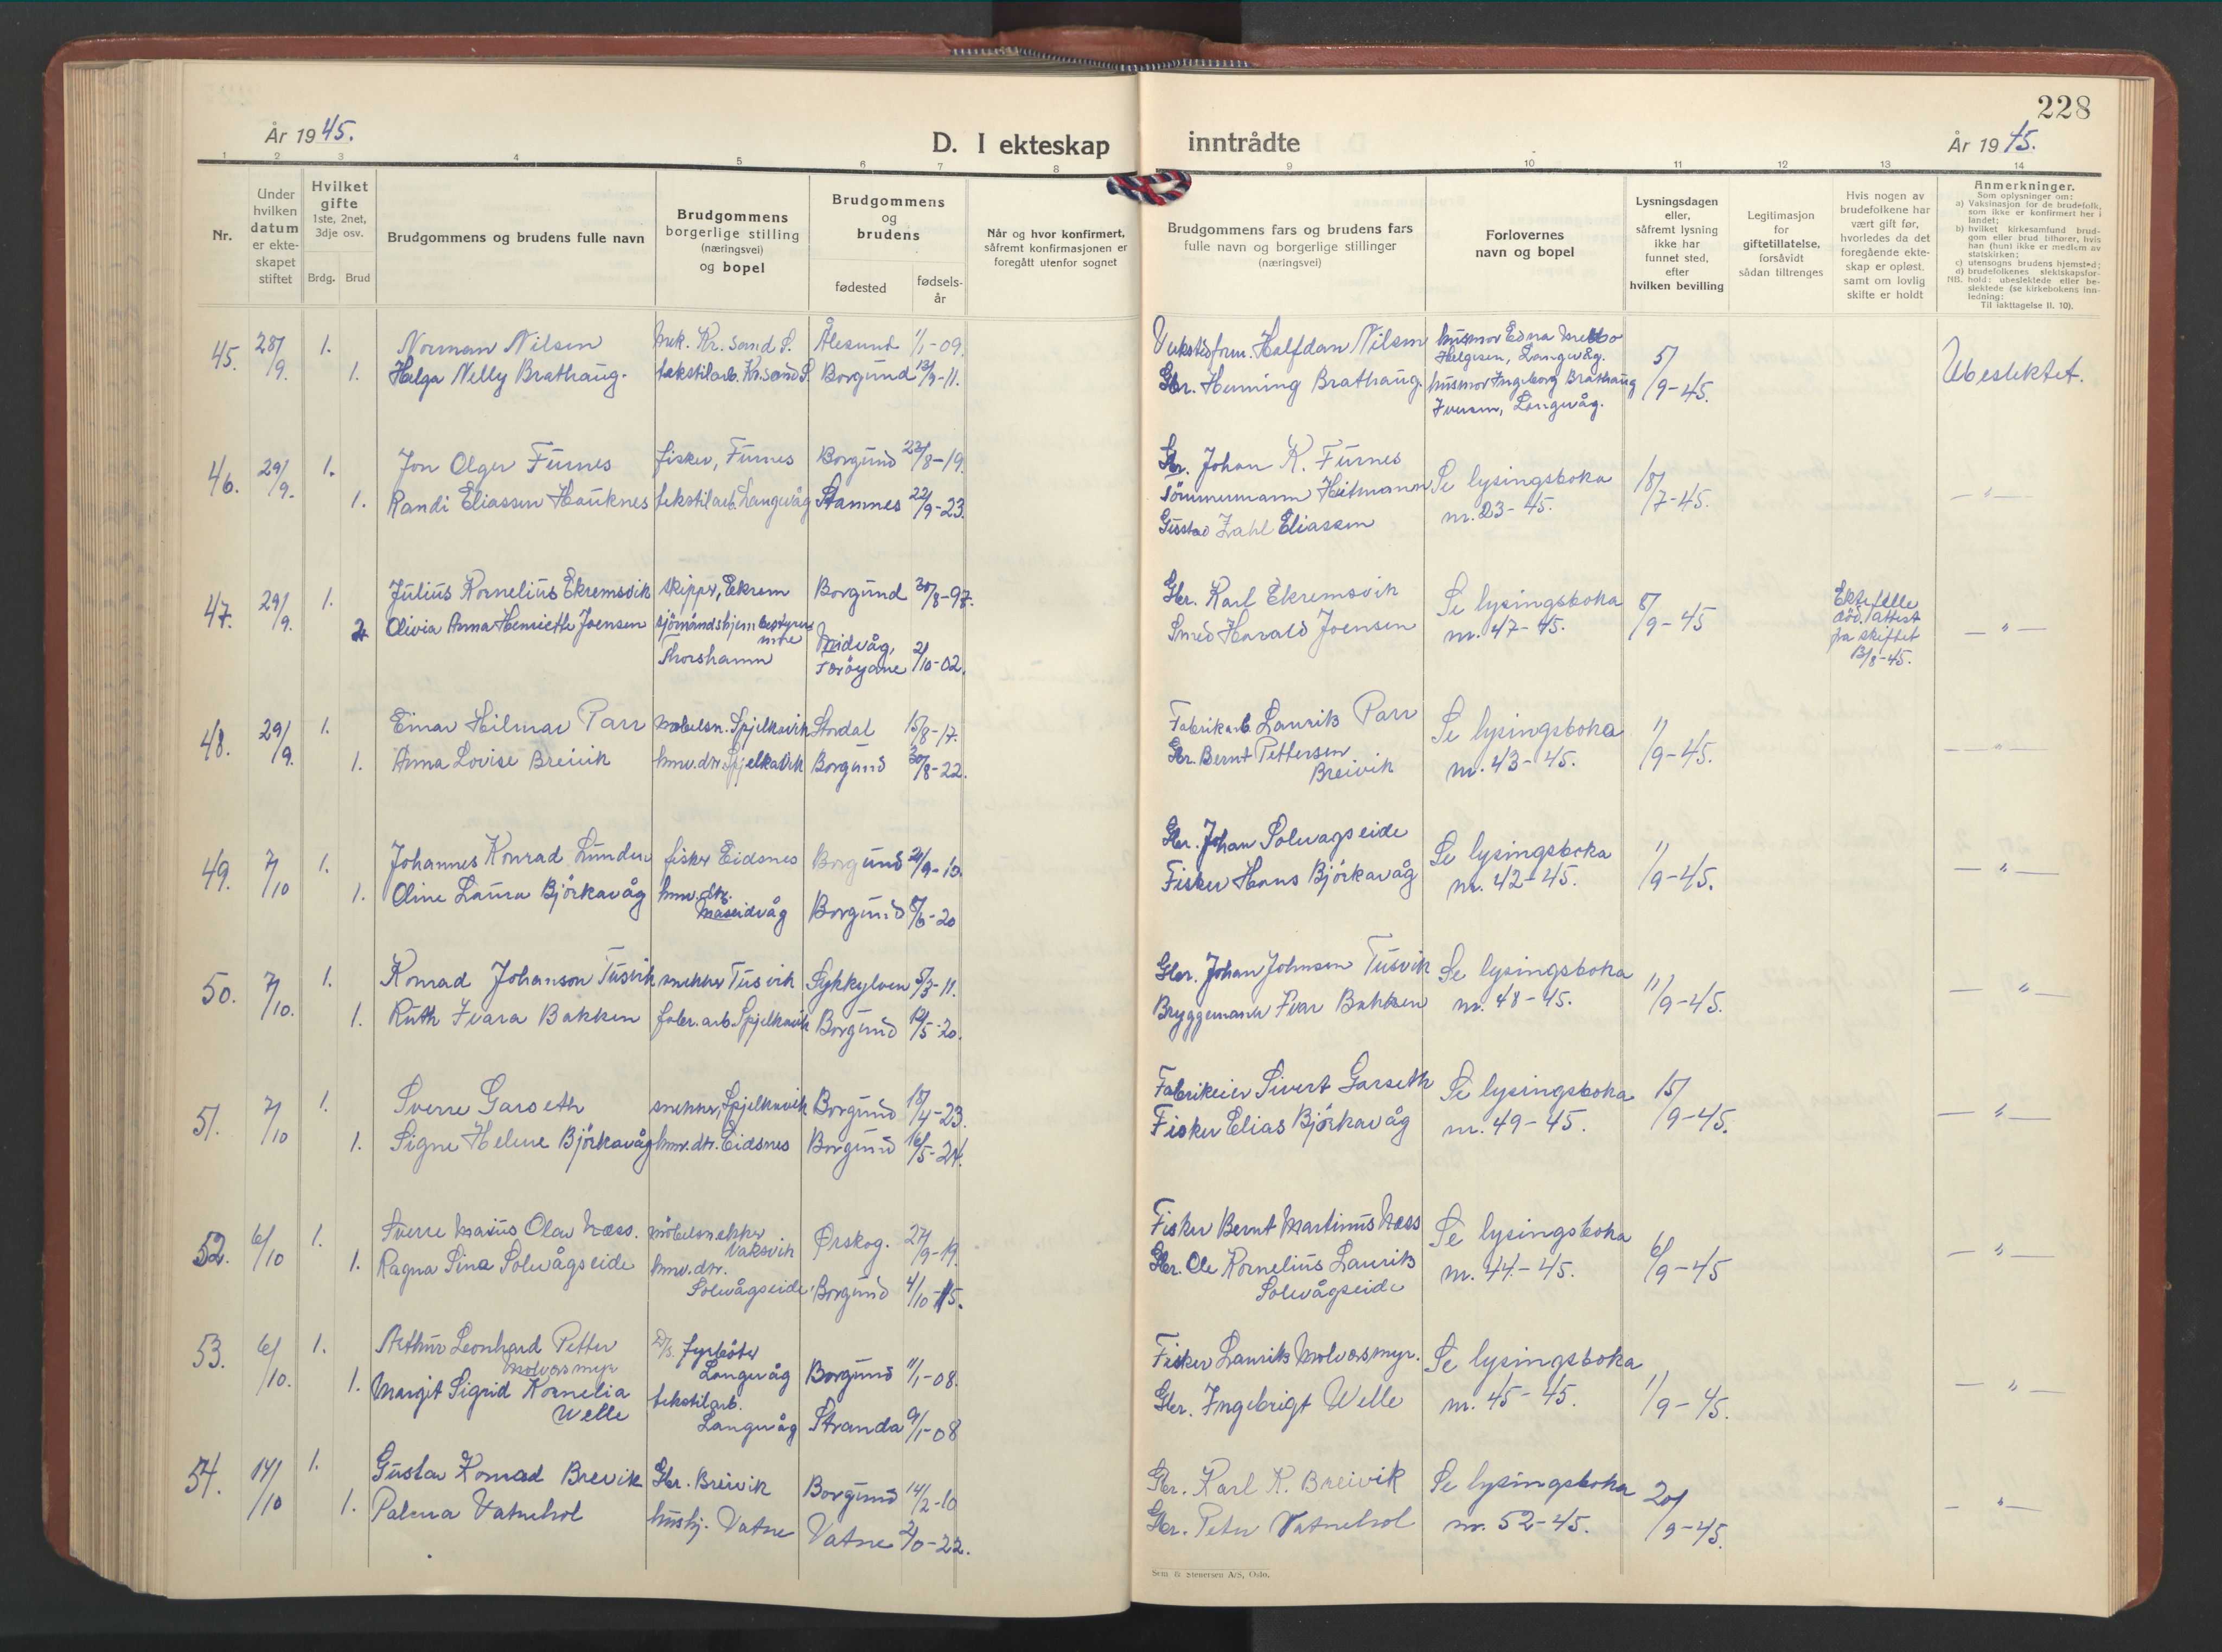 228
År 1945.
D. I ekteskap inntrådte
År 1945.
1 2 3 4 5 6 7 8 9 10 11 12 13 14
Nr.
Under hvilken datum er ekteskapet stiftet
Hvilket gifte
1ste, 2net, 3dje osv.
Brdg. Brud
Brudgommens og brudens fulle navn
Brudgommens borgerlige stilling (næringsvei) og bopel
Brudgommens og brudens
fødested
fødselsår
Når og hvor konfirmert, såfremt konfirmasjonen er foregått utenfor sognet
Brudgommens fars og brudens fars fulle navn og borgerlige stillinger (næringsvei)
Forlovernes navn og bopel
Lysningsdagen eller, såfremt lysning ikke har funnet sted, efter hvilken bevilling
Legitimasjon for giftetillatelse, forsåvidt sådan tiltrenges
Hvis nogen av brudefolkene har vært gift før, hvorledes da det foregående ekteskap er opløst, samt om lovlig skifte er holdt
Anmerkninger.
Som oplysninger om:
a) Vaksinasjon for de brudefolk, som ikke er konfirmert her i landet;
b) hvilket kirkesamfund brudgom eller brud tilhører, hvis han (hun) ikke er medlem av statskirken;
c) utensogns brudens hjemsted;
d) brudefolkenes slektskapsforhold: ubeslektede eller beslektede (se kirkebokens innledning:
NB.
Til iakttagelse II. 10).
45. 28/9. 1. Norman Nilsen mek. Kr.sand S. Ålesund 1/1-09. Verkstedform. Halfdan Nilsen husmor Edna
Helgesen, Langevåg. 5/9-45. Ubeslektet.
1. Helga Nelly Brathaug. tekstilarb. Kr.sand S. Borgund 13/9-11. Gbr. Henning Brathaug. husmor Ingeborg Brathaug
Iversen, Langevåg.
46. 29/9. 1. Jon Olger Furnes fisker, Furnes Borgund 23/8-19. Gbr. Johan K. Furnes Se lysingsboka 18/7-45. — " —
1. Randi Eliassen Hauknes tekstilarb. Langevåg Stamnes 22/9-23. Tömmermann Hitmann nr. 23-45.
Zahl Eliassen
47. 29/9. 1. Julius Kornelius Ekremsvik skipper, Ekrem Borgund 30/8-97. Gbr. Karl Ekremsvik Se lysingsboka 8/9-45 Ektefelle
død. Attest
fra skiftet
13/8-45. — " —
2. Olivia Anna Henriette Joensen sjömandshjembestyrerinne
Thorshamn Midvåg,
Færöyane 2/10-02. Smed Harald Joensen nr. 47-45.
48. 29/9. 1. Einar Hilmar Parr möbelsn. Spjelkavik Stordal 15/8-17. Fabrikarb. Laurits Parr Se lysingsboka 1/9-45. — " —
1. Anna Lovise Breivik hmv.dtr. Spjelkavik Borgund 30/8-22. Gbr. Bernt Pettersen
Breivik nr. 43-45.
49. 7/10 1. Johannes Konrad Lunden fisker Eidsnes Borgund 21/9-10. Gbr. Johan Solevagseide Se lysingsboka 1/9-45. — " —
1. Oline Laura Björkavåg hmv.dtr.
Maseidvåg Borgund 8/6-20 Fisker Hans Björkavåg nr. 42-45.
50. 7/10. 1. Konrad Johanson Tusvik snekker Tusvik Sykkylven 5/3-11. Gbr. Johan Johnsen Tusvik Se lysingsboka 11/9-45. — " —
1. Ruth Ivara Bakken fabr.arb. Spjelkavik Borgund 12/5-20. Bryggemann Ivar Bakken nr. 48-45.
51. 7/10 1. Sverre Garseth snekker, Spjelkavik Borgund 18/4-23. Fabrikeier Sivert Garseth Se lysingsboka 15/9-45. — " —
1. Signe Helene Björkavåg hmv.dtr. Eidsnes Borgund 16/5-24. Fisker Elias Björkavåg nr. 49-45.
52. 6/10 1. Sverre Marius Olav Næss. möbelsnekker
Vaksvik Ørskog. 27/9-19. Fisker Bernt Martinus Næss Se lysingsboka 6/9-45 — " —
1. Ragna Sina Solevågseide hmv.dtr.
Solevågseide Borgund 4/10-15. Gbr. Ole Kornelius Laurits
Solevågseide nr. 44-45.
53. 6/10. 1. Arthur Leonhard Petter
Molværsmyr D/S. fyrböter
Langevåg Borgund 11/1-08. Fisker Laurits Molværsmyr. Se lysingsboka 1/9-45. — " —
1. Margit Sigrid Kornelia
Welle tekstilarb.
Langevåg Stranda 9/1-08 Gbr. Ingebrigt Welle nr. 45-45.
54. 14/10 1. Gustav Konrad Brevik Gbr. Breivik Borgund 14/2-10 Gbr. Karl K. Breivik Se lysingsboka 20/9-45. — " —
1. Palma Vatnehol hushj. Vatne Vatne 2/10-22. Gbr. Peter Vatnehol nr. 52-45.
Sem & Stenersen A/S, Oslo.